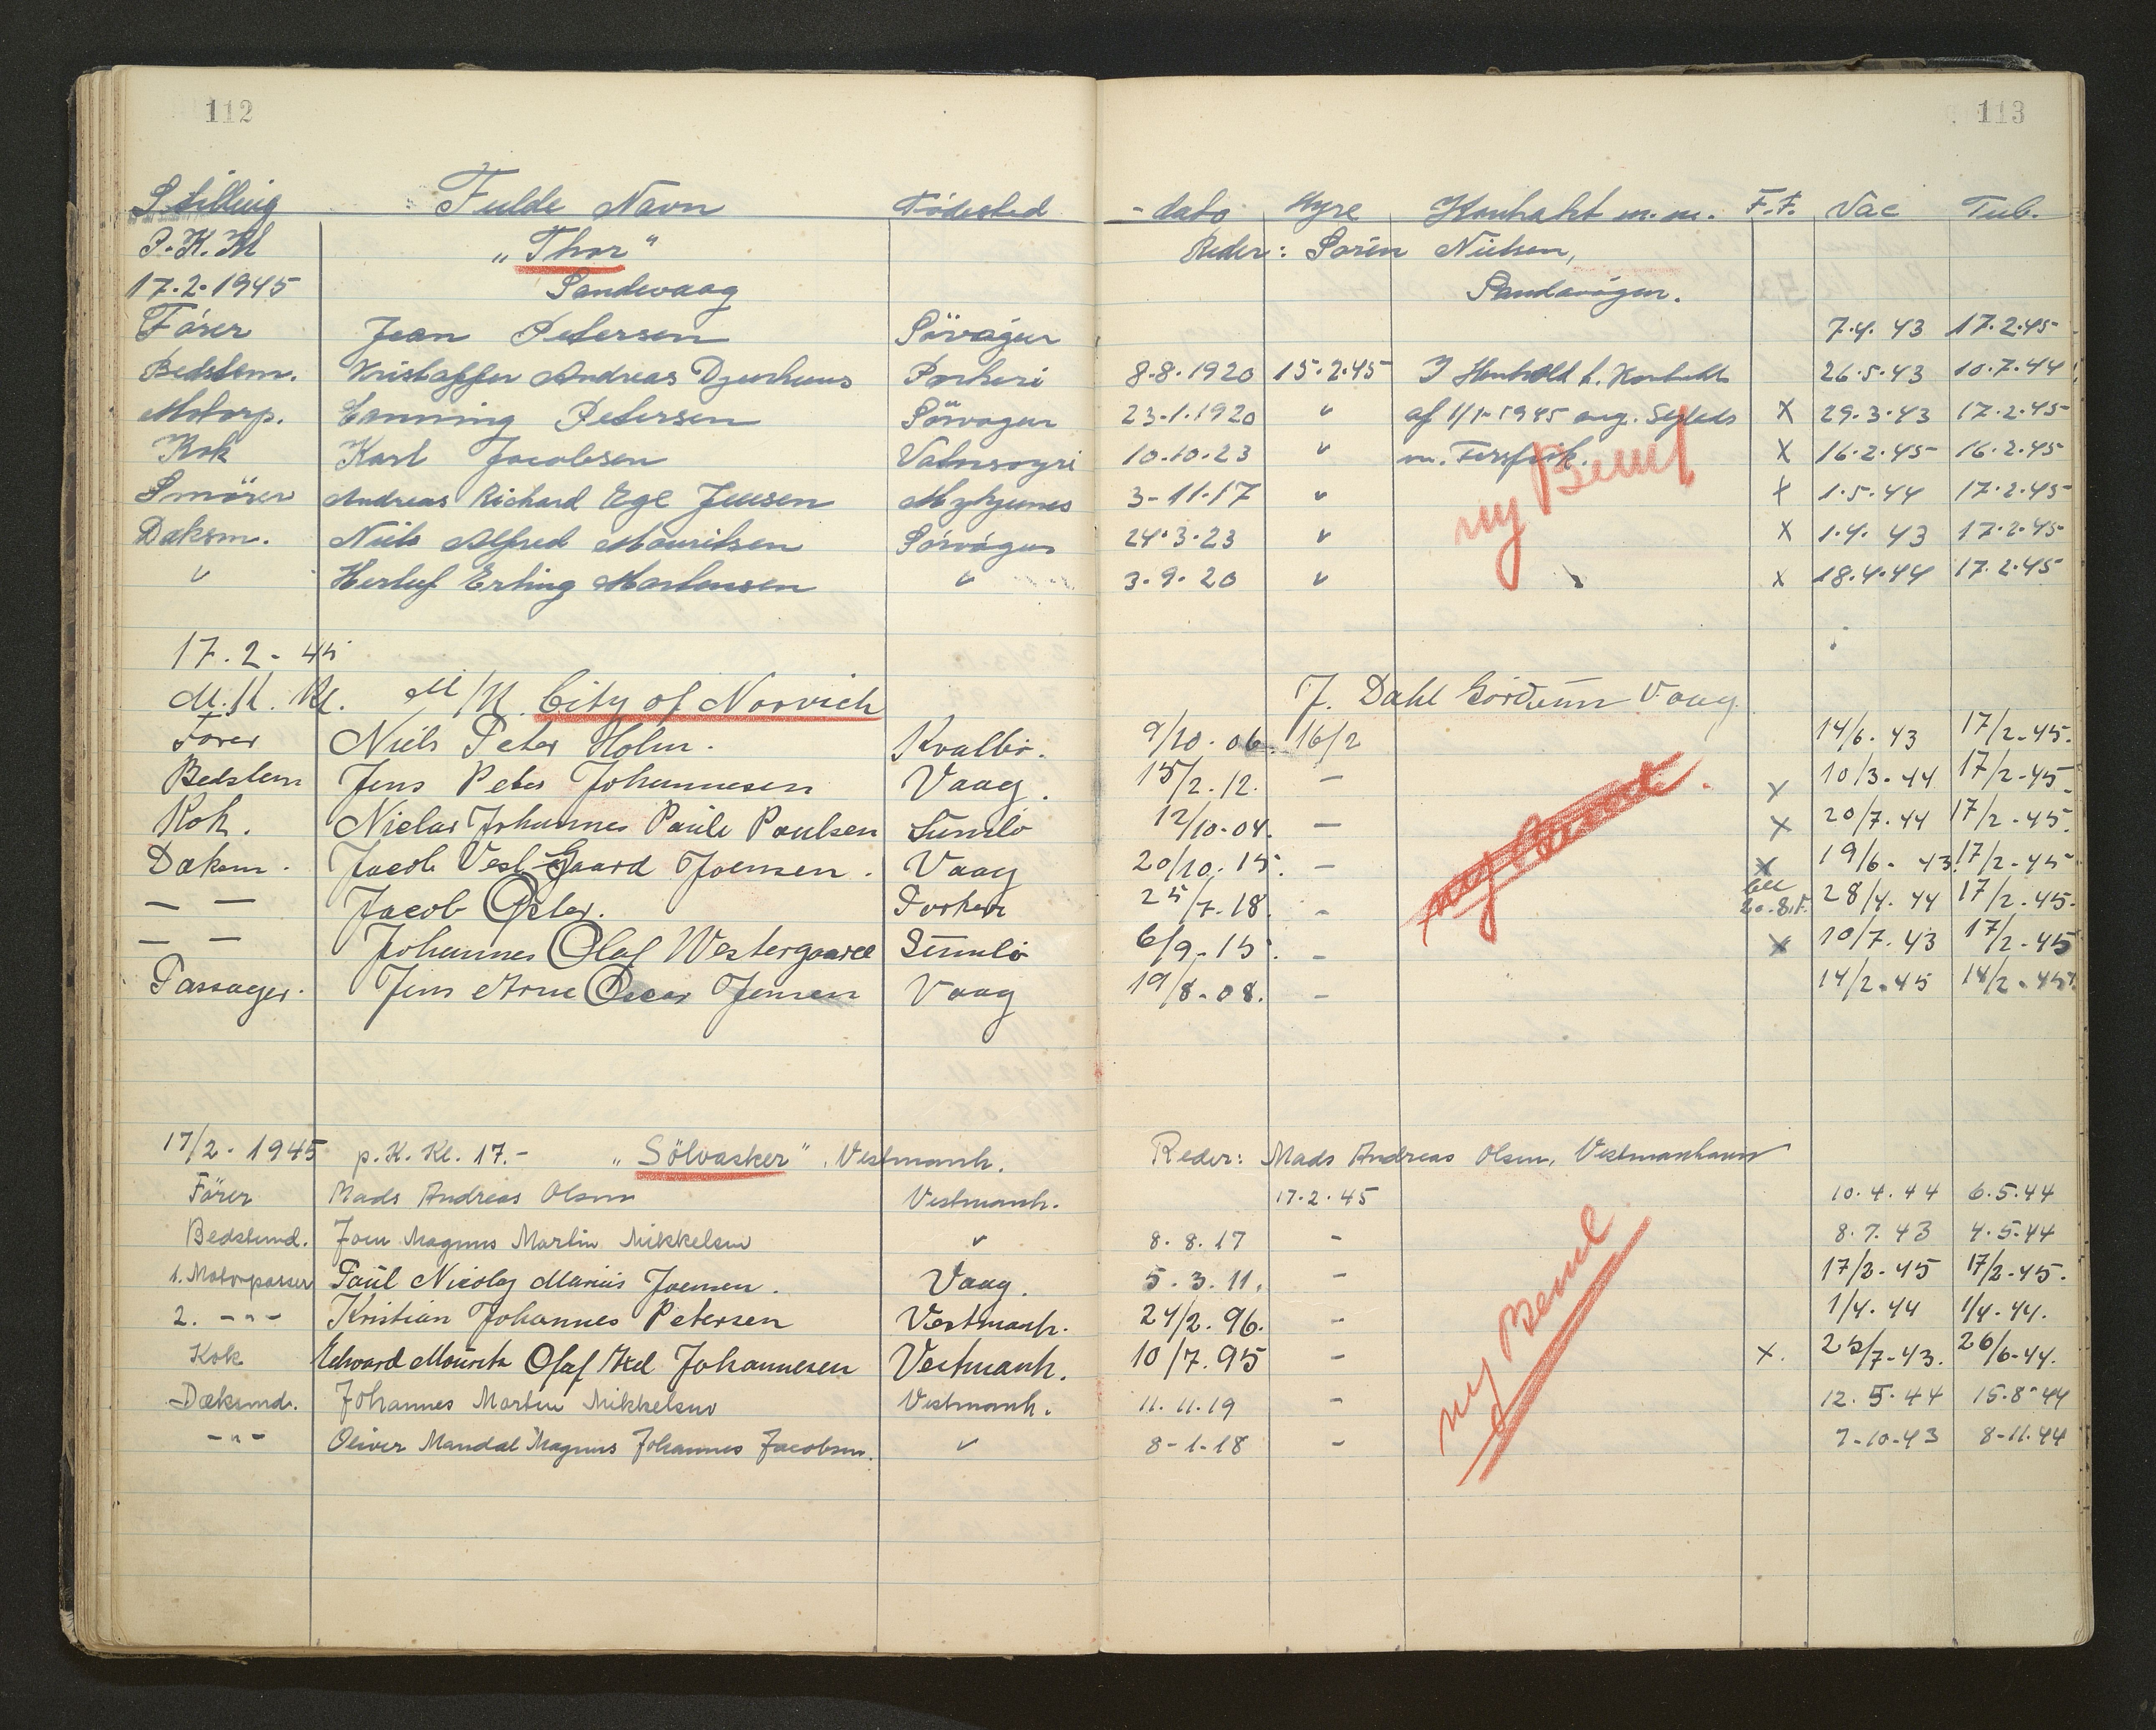 112
113
Stilling Fulde Navn Födested - dato Hyre Kontrakt m.m. F.F. Vac Tub.
P.K.Kl „Thor" Reder: Sören Nielsen,
17.2.1945 Sandevaag Sandavágur.
Förer Joan Petersen Sörvágur 7.4.43 17.2.45
Bedstem. Kristoffer Andreas Djurhuus Porkeri 8.8.1920 15.2.45 I Henhold t. 26.5.43 10.7.44
Motorp. Henning Petersen Sörvagur 23.1.1920 " af 1/1-1945 ang. X 29.3.43 17.2.45
Kok Karl Jacobsen Vatnsoyri 10.10.23 " m. X 16.2.45 16.2.45
Smörer Andreas Richard Ege Jensen Mykjunes 3-11.17 " X 1.5.44 17.2.45
ny Bem
Daksm. Niels Alfred Mouritsen Sörvágur 24.3.23 " X 1.4.43 17.2.45
" Herluf Erling Mortensen " 3.9.20 " X 18.4.44 17.2.45
17.2-45
M.K. Kl. M/K City of Norvich J. Dahl Vaag
Förer Niels Peter Holm. Kvalbö. 9/10.06. 16/2 14/6.43 17/2-45.
Bedstem Jens Peter Johannesen Vaag. 15/2.12. — x 10/3-44 17/2-45
Kok. Niclas Johannes Paule Poulsen Sumbö 12/10-04. — x 20/7.44 17/2-45.
Daksm. Jacob Vest-Gaard Joensen. Vaag 20/10.15. — x 19/6-43. 17/2-45
— — Jacob Peter. Porkeri 25/7.18. - 28/4.44 17/2-45.
— — Johannes Olaf Westergaard Sumbö 6/9-15. - x 10/7.43 17/2-45
Passager. Jens Arne Oscar Jensen Vaag 19/8-08. - 14/2.45 14/2.45.
17/2-1945 p.K. Kl. 17.- „Sölvasker", Vestmanh. Reder: Mads Andreas Olsen, Vestmanhavn
Förer Mads Andreas Olsen Vestmanh. 17.2.45 10.4.44 6.5.44
Bedstemd. Joen Magnus Martin Mikkelsen " 8.8.17 - 8.7.43 4.5.44
1. Motorpasser Paul Nicolaj Marius Joensen. Vaag. 5.3.11. - 17/2-45 17/2-45.
2. -"- Kristian Johannes Petersen Vestmanh. 24/2.96. - 1/4.44 1/4.44.
ny Bem
Kok Edvard Mouritz Olaf Axel Johannesen Vestmanh. 10/7.95 - x. 25/7-43. 26/6-44.
Dæksmd. Johannes Martin Mikkelsen Vestmanh. 11.11.19 - 12.5.44 15.8-44
-"- Oliver Mandal Magnus Johannes Jacobsen. " 8-1-18 - 7-10-43 8-11.44